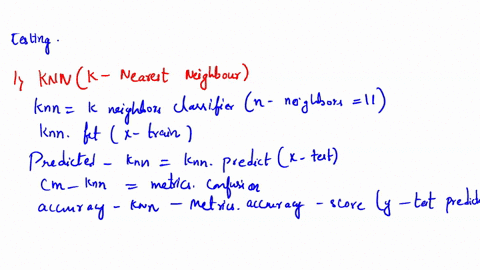 Testing.
1) KNN (K- Nearest Neighbour)
Knn = K neighbors classifier (n- neighbors = 11)
Knn. fit (x- train)
Predicted - Knn = Knn. predict (x- test)
Cm - Knn = metrics. confusion
accuracy - Knn - Metrics. accuracy - score (y - test predict